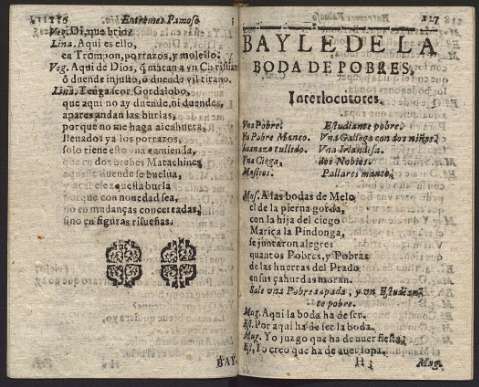 Entremes Famoso
Veg. Di, que brio?
Lina. Aqui es ello,
ea Trompon, porrazos, y molello.
Veg. Aqui de Dios, q̃ matan a vn Christian
ò duende injusto, ò duende vil tirano.
Lina. Tengase or Gordalobo,
que aqui no ay duende, ni duendes,
apares andan las burlas,
porque no me haga alcahueta,
llenados ya los porrazos,
solo tiene esto enmienda,
dos Matachines,
duende se buelua,
esta burla
porque con nouedad sea,
no en mudanças concertadas,
sino en figuras risueñas.
BAY-
117
BAYLE DE LA
BODA DE POBRES.
Interlocutores.
Vna Pobre. Estudiante pobre.
Vn Pobre Manco. Vna Gallega con dos niños.
tullido. Vna Irlandesa.
Vna Ciega. dos Nobios.
Musicos. Pallares manco.
Mus. A las bodas de Melo
el de la pierna gorda,
con la hija del ciego
Marica la Pindonga,
se juntaron alegres
quantos Pobres, y Pobras
de las huertas del Prado
en sus çahurdas moran.
Sale vna Pobre tapada, y vn Estudian
te pobre.
Mug. Aqui la boda ha de ser.
Est. Por aqui ha de ser la boda.
Mug. Yo juzgo que ha de auer fiesta,
Est. Yo creo que ha de auer sopa.
H Mug.